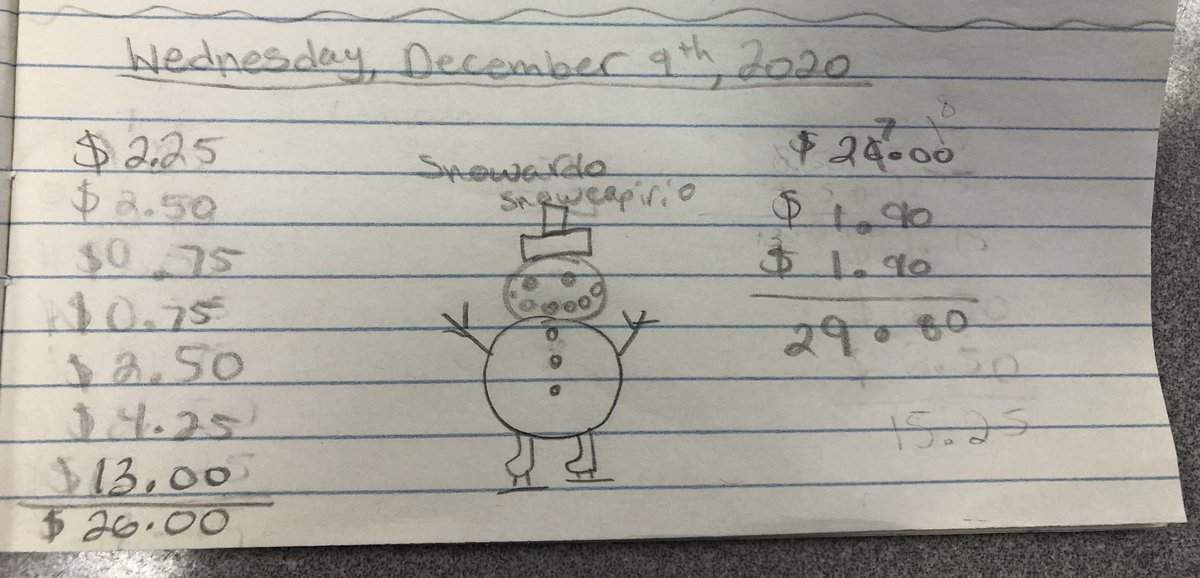 Wednesday, December 9th, 2020
$ 2.25
$ 2.50
$0.75
$ 0.75
$ 2.50
$ 4.25
$13.00
$ 26.00
Snowardo
snowcapirio
7 10
$ 26.00
$ 1.90
$ 1.90
29.80
15.25